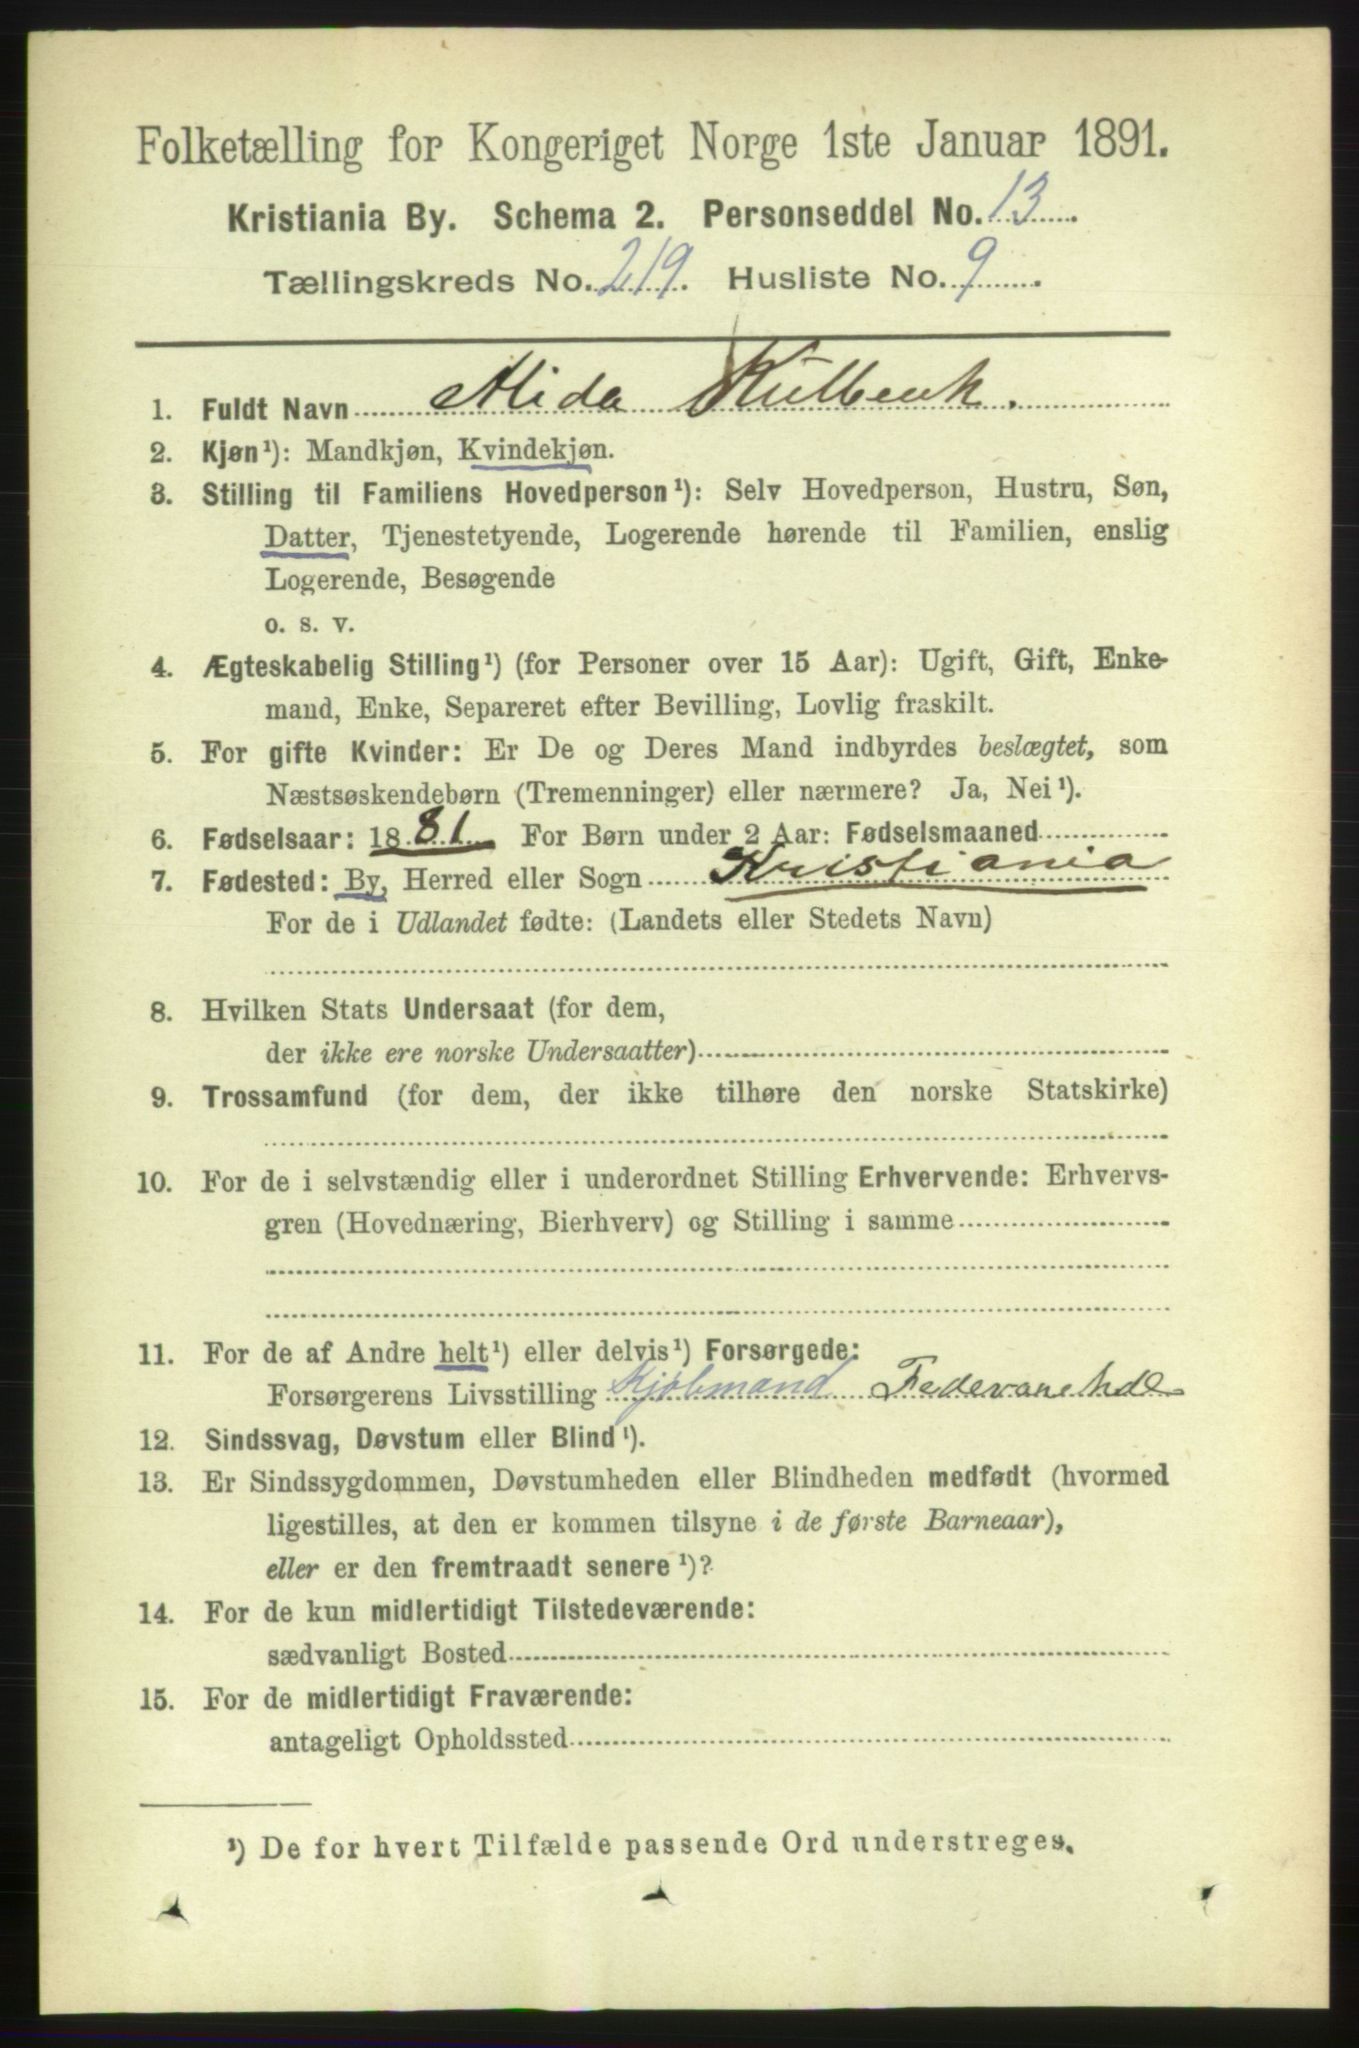 Folketælling for Kongeriget Norge 1ste Januar 1891.
Kristiania By. Schema 2. Personseddel No. 13.
Tællingskreds No. 219. Husliste No. 9.
1. Fuldt Navn Alida
2. Kjøn¹): Mandkjøn, Kvindekjøn.
3. Stilling til Familiens Hovedperson¹): Selv Hovedperson, Hustru, Søn,
Datter, Tjenestetyende, Logerende hørende til Familien, enslig
Logerende, Besøgende
o. s. v.
4. Ægteskabelig Stilling¹) (for Personer over 15 Aar): Ugift, Gift, Enke-
mand, Enke, Separeret efter Bevilling, Lovlig fraskilt.
5. For gifte Kvinder: Er De og Deres Mand indbyrdes beslægtet, som
Næstsøskendebørn (Tremenninger) eller nærmere? Ja, Nei¹).
6. Fødselsaar: 1881 For Børn under 2 Aar: Fødselsmaaned
7. Fødested: By, Herred eller Sogn Kristiania
For de i Udlandet fødte: (Landets eller Stedets Navn)
8. Hvilken Stats Undersaat (for dem,
der ikke ere norske Undersaatter)
9. Trossamfund (for dem, der ikke tilhøre den norske Statskirke)
10. For de i selvstændig eller i underordnet Stilling Erhvervende: Erhvervs-
gren (Hovednæring, Bierhverv) og Stilling i samme
11. For de af Andre helt¹) eller delvis¹) Forsørgede:
Forsørgerens Livsstilling Kjøbmand
12. Sindssvag, Døvstum eller Blind¹).
13. Er Sindssygdommen, Døvstumheden eller Blindheden medfødt (hvormed
ligestilles, at den er kommen tilsyne i de første Barneaar),
eller er den fremtraadt senere¹)?
14. For de kun midlertidigt Tilstedeværende:
sædvanligt Bosted
15. For de midlertidigt Fraværende:
antageligt Opholdssted
¹) De for hvert Tilfælde passende Ord understreges.